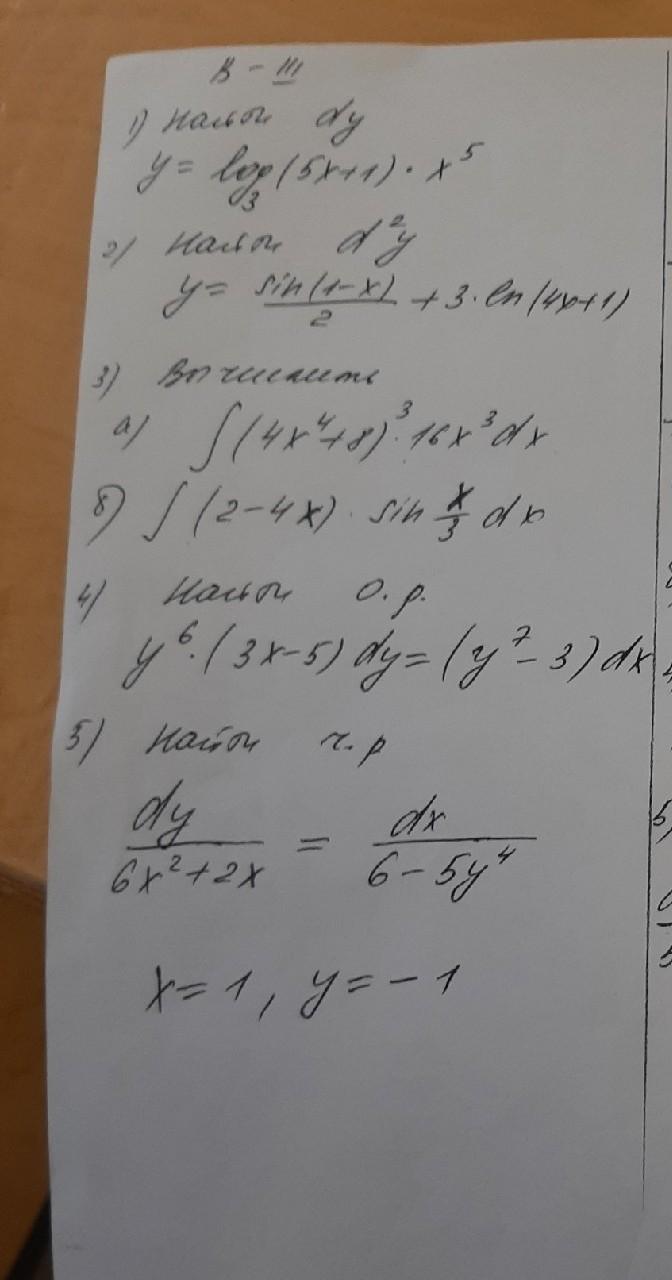 В - III
1) Найти dy
y = log₃(5x+1) · x⁵
2) Найти d²y
y = sin(1-x)/2 + 3 · ln(4x+1)
3) Вычислить
а) ∫(4x⁴+8)³ · 16x³dx
б) ∫(2-4x) · sin x/3 dx
4) Найти о.р.
y⁶ · (3x-5)dy = (y⁷-3)dx
5) Найти ч.р
dy/(6x²+2x) = dx/(6-5y⁴)
x=1, y=-1